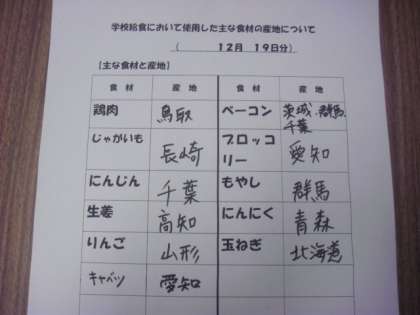 学校給食において使用した主な食材の産地について
( 12月 19日分)
【主な食材と産地】
食材 産地 食材 産地
鶏肉 鳥取 ベーコン 茨城 群馬 千葉
じゃがいも 長崎 ブロッコリー 愛知
にんじん 千葉 もやし 群馬
生姜 高知 にんにく 青森
りんご 山形 玉ねぎ 北海道
キャベツ 愛知